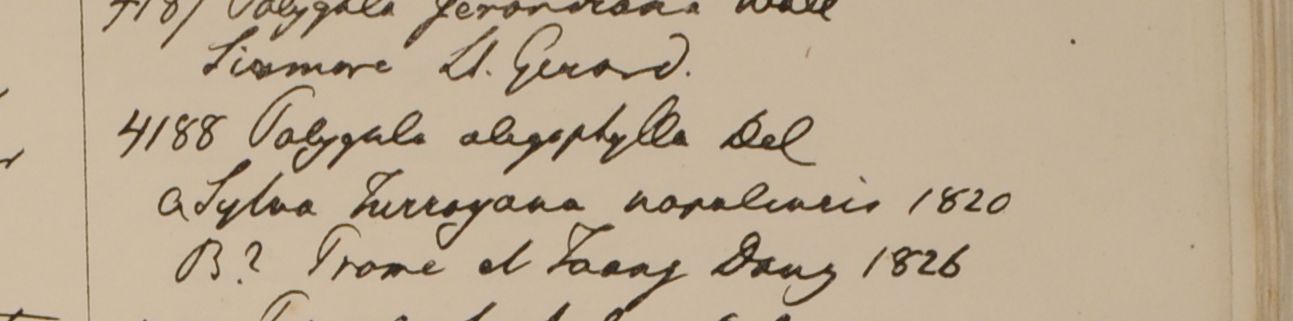 4187 Polygala Gerardiana Wall
Sirmore Lt. Gerard.
4188 Polygala oligophylla Del
a Sylva Hurroyana napalensis 1820
B? Prome et Taong Dong 1826